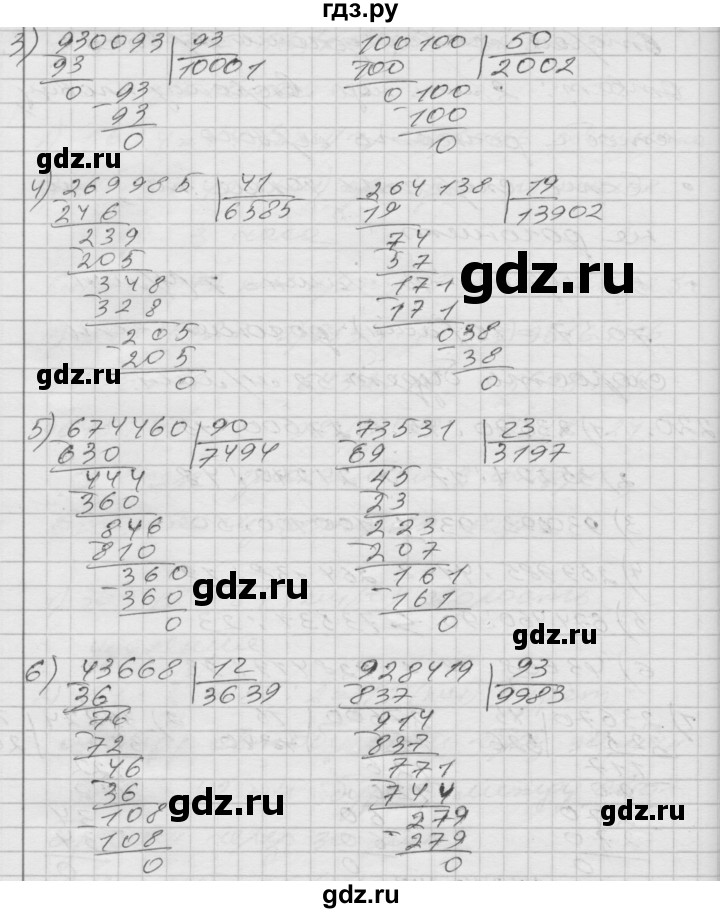 гдз.ру
3) 930093 93 100100 50
93 10001 100 2002
0 93 0 100
93 100
0 0
gdz.ru gdz.ru
4) 269985 41 264138 19
246 6585 19 13902
239 74
205 57
348 171
328 171
205 038
205 38
0 0
gdz.ru
gdz.ru
5) 674460 90 73531 23
630 7494 69 3197
444 45
360 23
846 223
810 207
360 161
360 161
0 0
gdz.ru
gdz.ru
6) 43668 12 928419 93
36 3639 837 9983
76 914
72 837
46 771
36 744
108 279
108 279
0 0
gdz.ru
gdz.ru
gdz.ru